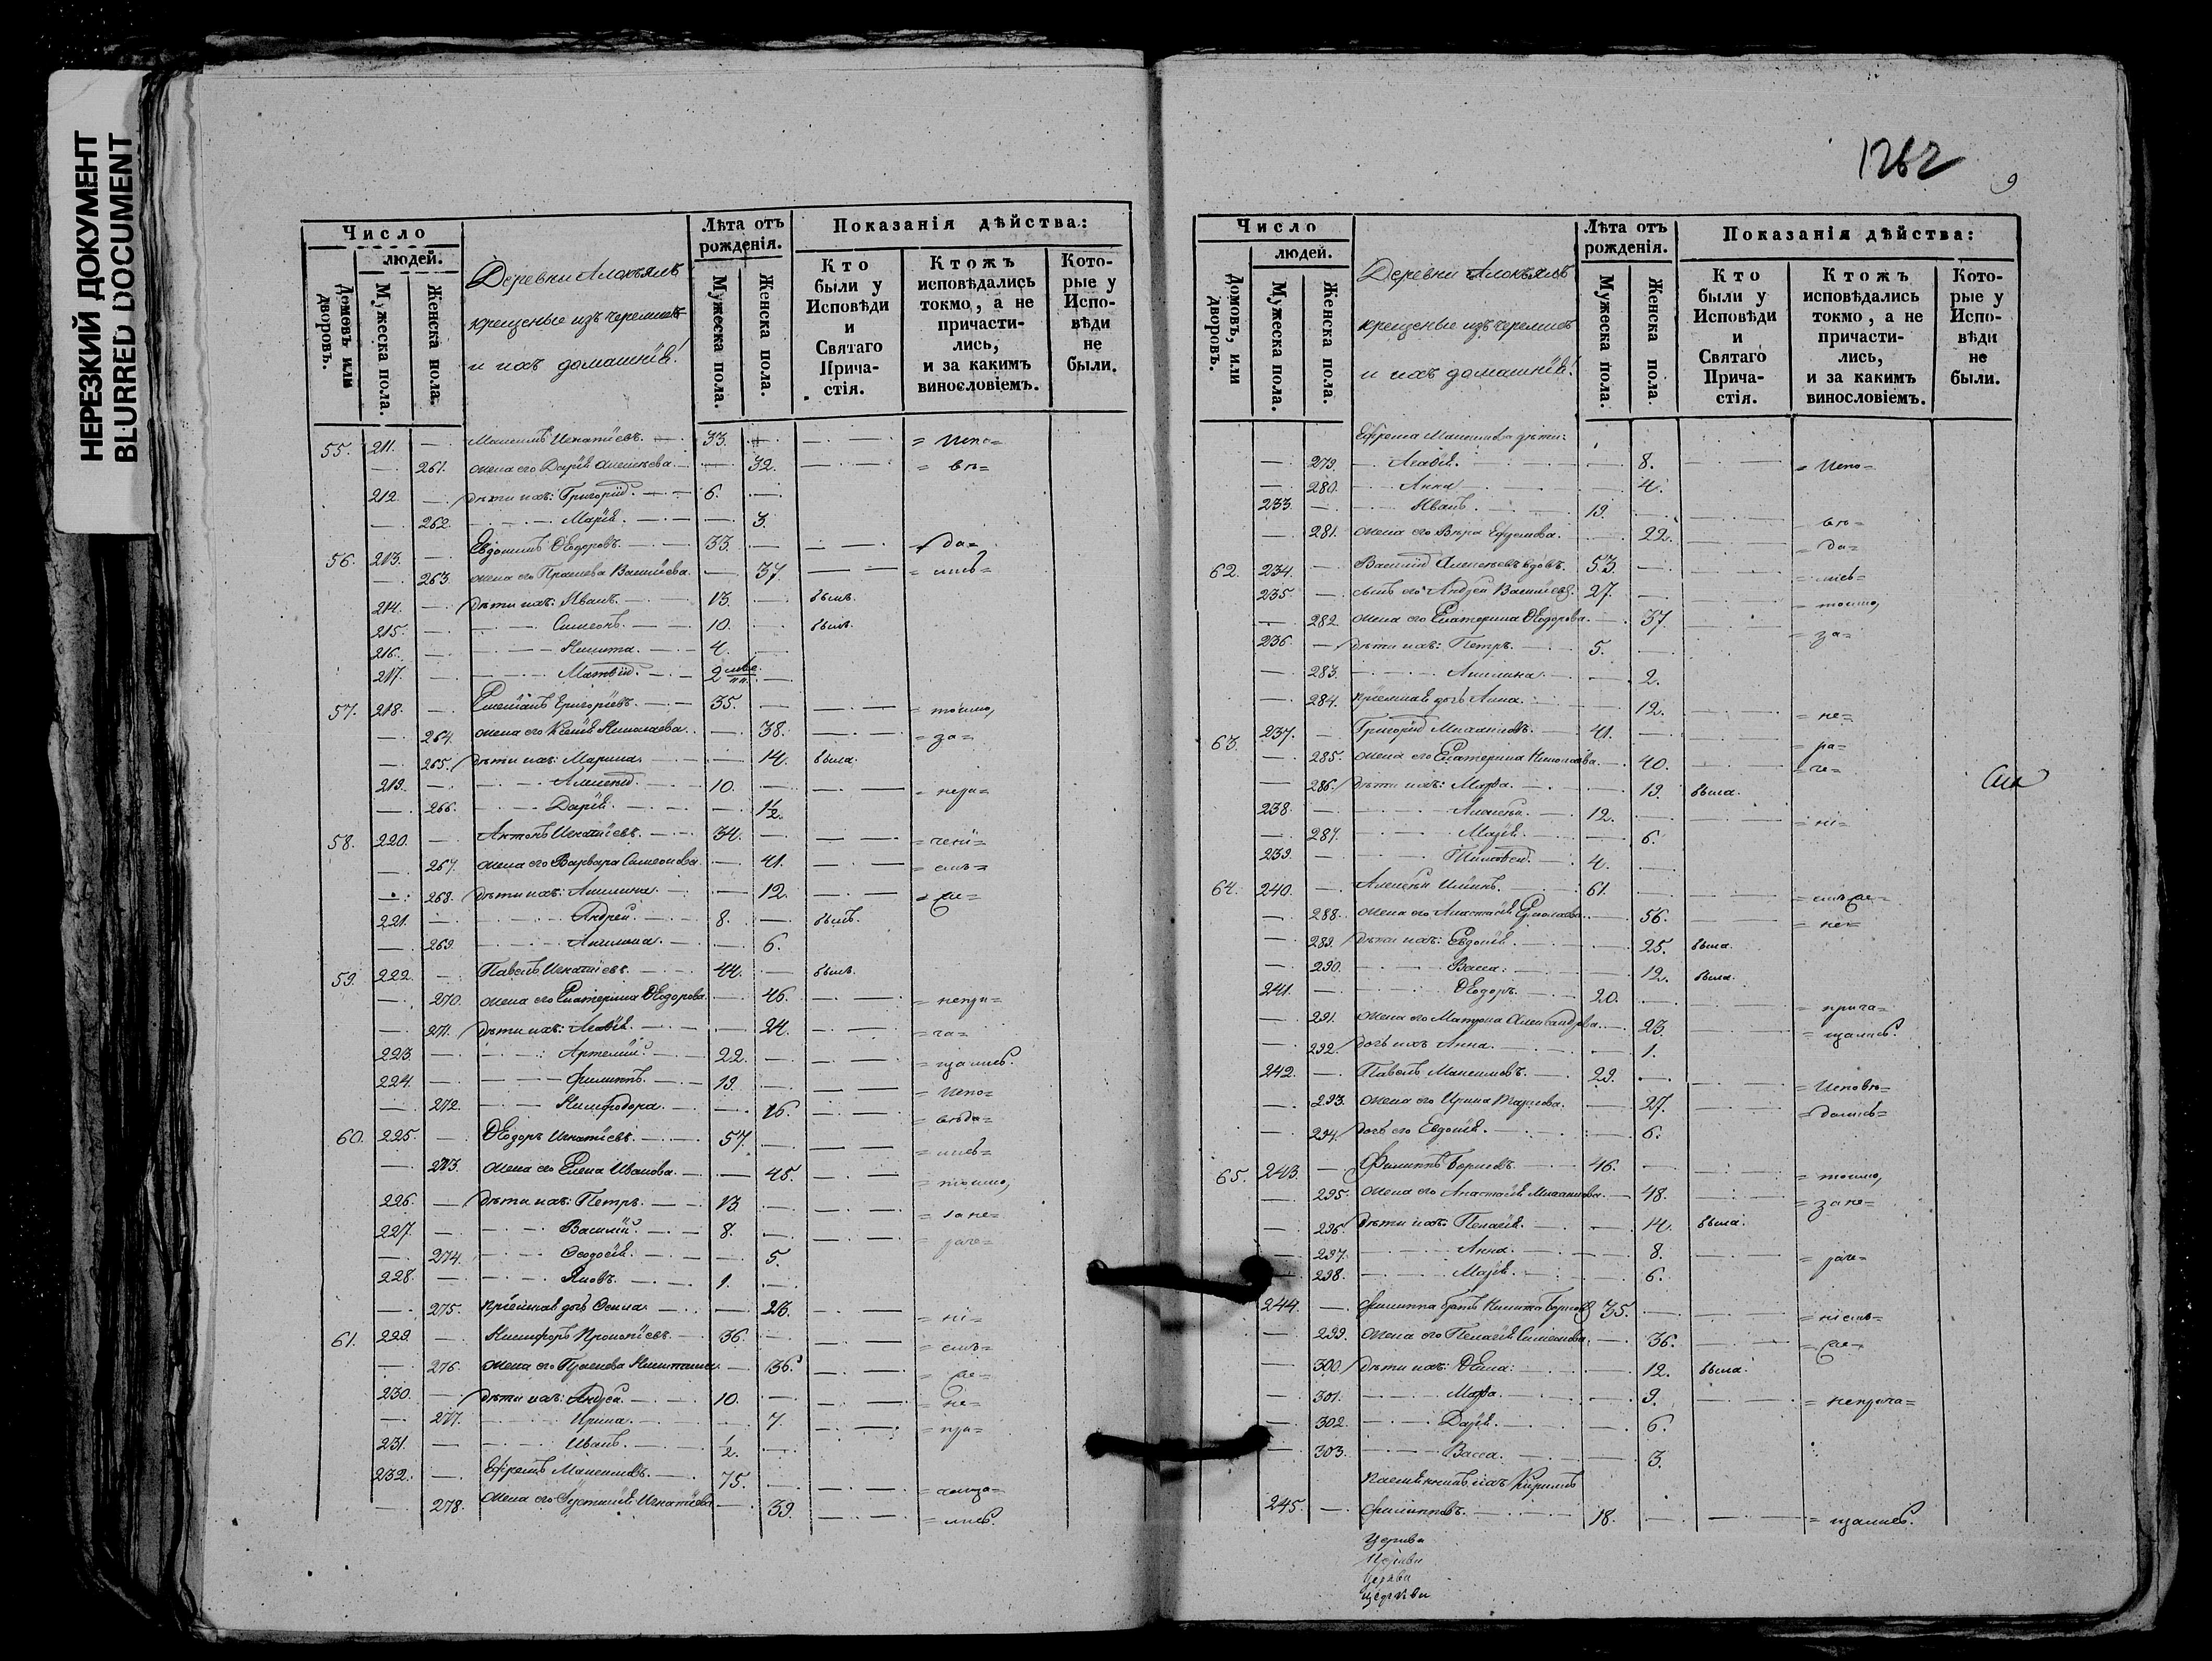 НЕРЕЗКИЙ ДОКУМЕНТ
BLURRED DOCUMENT
Число
людей.
Домовъ или дворовъ.
Мужеска пола.
Женска пола.
Деревни
крещеные изъ черемисъ
и ихъ домашнія!
Лѣта отъ рожденія.
Мужеска пола.
Женска пола.
Показанія дѣйства:
Кто были у Исповѣди и Святаго Прича-стія.
Ктожъ исповѣдались токмо, а не причасти-лись, и за какимъ винословіемъ.
Кото-рые у Испо-вѣди не были.
55. 211. — Максимъ Игнатіевъ. 33. — = Испо=
— 261. жена его Дарія Алексѣева. — 32. = вѣ=
212. — дѣти ихъ: Григорій. 6. —
— 262. Марія. — 3.
56. 213. — Евдокимъ Ѳеодоровъ. 33. — = да=
— 263. жена его Васиliева. — 37. = лись=
214. — дѣти ихъ: Иванъ. 13. — былъ.
215. — Симеонъ. 10. — былъ.
216. — Никита. 4. —
217. — Матвій. 2 —
57. 218. — Емеліанъ Григоріевъ. 35. — = токмо,
— 264. жена его Ксенія Николаева. — 38. = за=
— 265. дѣти ихъ: Марина. — 14. была.
219. — Алексій. 10. — = нера=
— 266. Дарія. — 1/2.
58. 220. — Антонъ Игнатіевъ. 34. — = чені=
— 267. жена его Варвара Симеонова. — 41. = емъ=
— 268. дѣти ихъ: Акилина. — 12. = Же=
221. — Андрей. 8. — былъ.
— 269. Акилина. — 6.
59. 222. — Павелъ Игнатіевъ. 44. — былъ.
— 270. жена его Екатерина Ѳеодорова. — 46. = непри=
— 271. дѣти ихъ: Агафія. — 24. = ча=
223. — Артемій. 22. — = щались.
224. — Филиппъ. 19. — = Испо=
— 272. Нимфодора. — 16. = вѣда=
60. 225. — Ѳеодоръ Игнатіевъ. 57. — = лись=
— 273. жена его Елена Иванова. — 45. = токмо,
226. — дѣти ихъ: Петръ. 13. — = за не=
227. — Василій. 8. — = раче=
— 274. Ѳеодосія. — 5.
228. — Яковъ. 1. —
— 275. пріемная дочь — 23. = ні=
61. 229. — Никифоръ Прокопіевъ. 36. — = емъ=
— 276. жена его — 36. = Же=
230. — дѣти ихъ: Андрей. 10. — = не=
— 277. Ирина. — 7. = при=
231. — Иванъ. 1/2. —
232. — Ефремъ Максимовъ. 75. —
— 278. жена его Іустинія Игнатіева — 39. = лись.
1262
9
Число
людей.
Домовъ, или дворовъ.
Мужеска пола.
Женска пола.
Деревни
крещеные изъ черемисъ
и ихъ домашнія!
Лѣта отъ рожденія.
Мужеска пола.
Женска пола.
Показанія дѣйства:
Кто были у Исповѣди и Святаго Прича-стія.
Ктожъ исповѣдались токмо, а не причасти-лись, и за какимъ винословіемъ.
Кото-рые у Испо-вѣди не были.
Ефрема Максимова дѣти:
— 279. Агафія. — 8. = Испо=
— 280. Анна — 4.
233. — Иванъ. 19. — = вѣ=
— 281. жена его Вѣра Ефремова. — 22. = да=
62. 234. — Василій Алексѣевъ вдовъ. 53. — = лись=
235. — сынъ его Андрей Василіевъ. 27. — = токмо,
— 282. жена его Екатерина Ѳеодорова. — 37. = за=
236. — дѣти ихъ: Петръ. 5. —
— 283. Акилина. — 2.
— 284. пріемная дочь Анна. — 12. = не=
63. 237. — Григорій Михаиловъ. 41. — = ра=
— 285. жена его Екатерина Николаева. — 40. = че=
— 286. дѣти ихъ: Марфа. — 19. была.
238. — Алексѣй. 12. — = ні=
— 287. Марія. — 6.
239. — Тимофей. 4. —
64. 240. — Алексѣй Ильинъ. 61. — = емъ Же=
— 288. жена его Анастасія Ермолаева. — 56. = не=
— 289. дѣти ихъ: Евдокія. — 25. была.
— 290. Васса. — 12. была.
241. — Ѳеодоръ. 20. — = прича=
— 291. жена его Матрона Александрова. — 23. = щались.
— 292. дочь ихъ Анна. — 1.
242. — Павелъ Максимовъ. 29. — = Исповѣ=
— 293. жена его Ирина Маркова. — 27. = дались=
— 294. дочь его Евдокія. — 6.
65. 243. — Филиппъ Борисовъ. 46. — = токмо,
— 295. жена его Анастасія Михаилова. — 48. = за не=
— 296. дѣти ихъ: Пелагія. — 14. была.
— 297. Анна. — 8. = раче=
— 298. Марія. — 6.
244. — Филиппа братъ Никита Борисовъ 35. — = ніемъ=
— 299. жена его Пелагія Симеонова. — 36. = Же=
— 300. дѣти ихъ: Ѳекла. — 12. была.
— 301. Марфа. — 9. = неприча=
— 302. Дарія. — 6.
— 303. Васса. — 3.
ихъ Кирилъ
245. — Филипповъ. 18. — = щались.
Церкви
Церкви
Церкви
Церкви